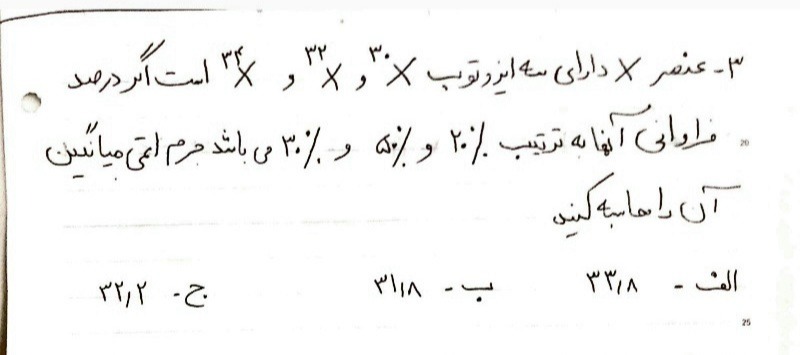 ۳- عنصر X دارای سه ایزوتوپ ³⁰X و ³²X و ³⁴X است اگر درصد
فراوانی آنها به ترتیب ۲۰٪ و ۵۰٪ و ۳۰٪ می باشد جرم اتمی میانگین
آن را محاسبه کنید
الف - ۳۳٫۸ ب - ۳۱٫۸ ج - ۳۲٫۲